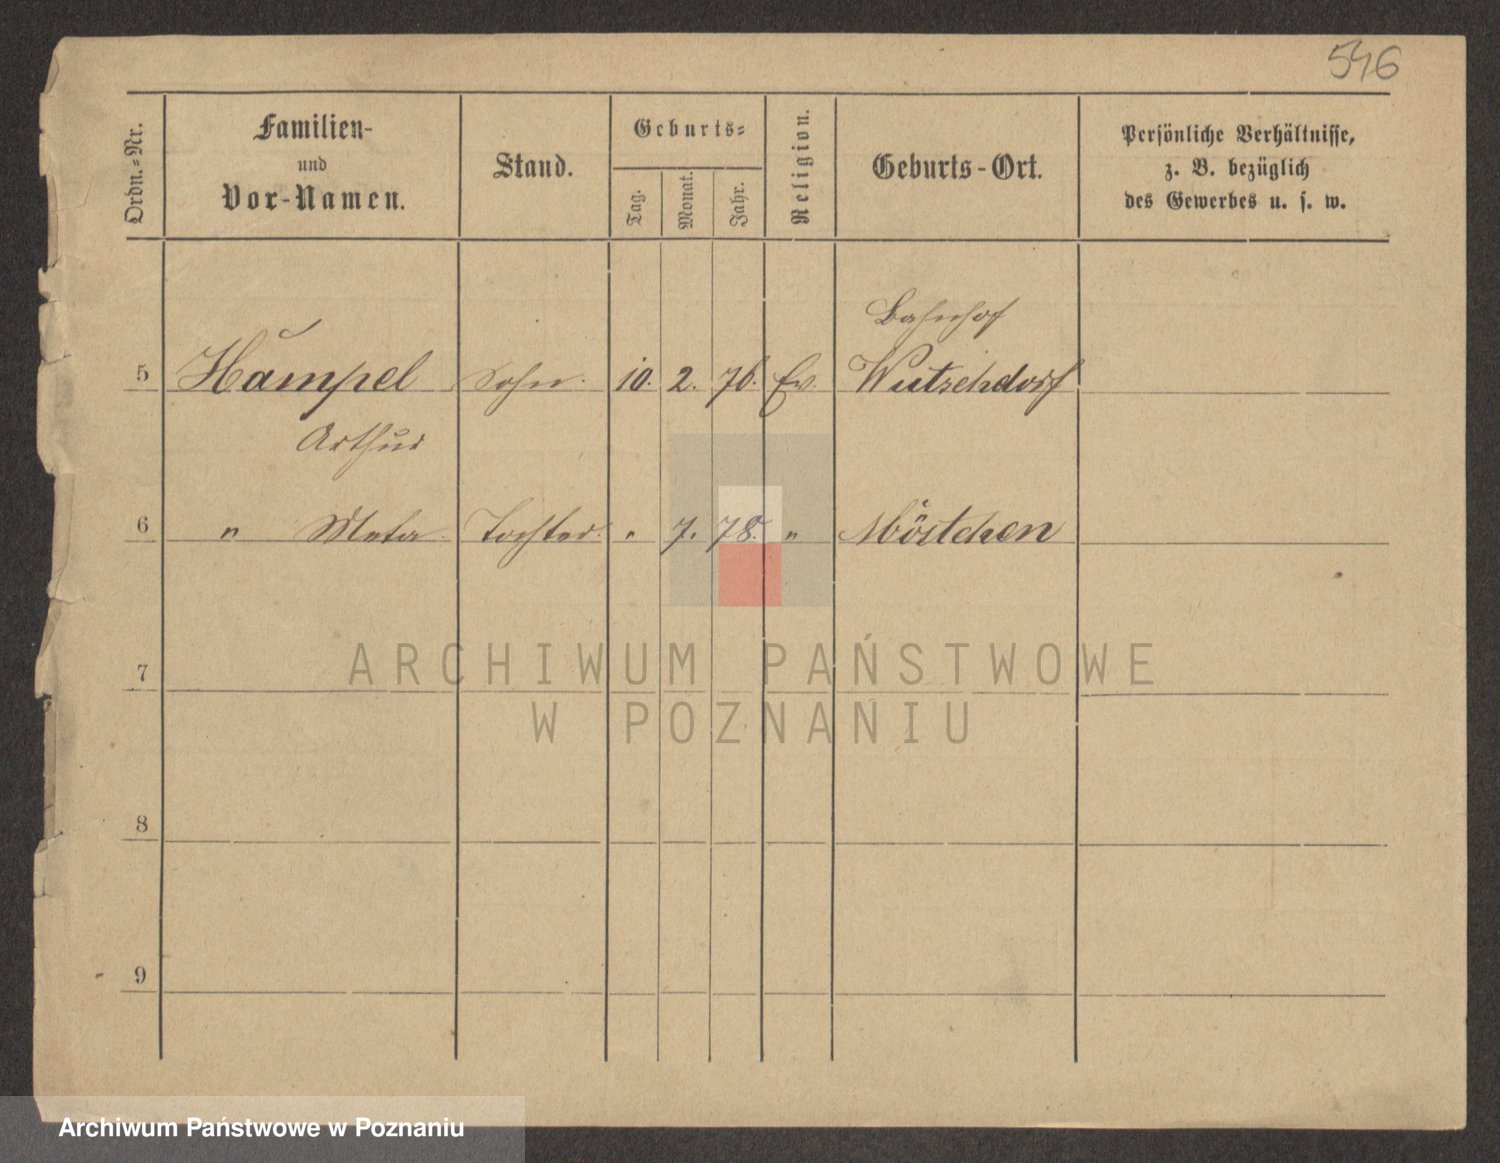 546
Ordn.-Nr.
Familien-
und
Vor-Namen.
Stand.
Geburts-
Tag.
Monat.
Jahr.
Religion.
Geburts-Ort.
Persönliche Verhältnisse,
z. B. bezüglich
des Gewerbes u. s. w.
Bahnhof
5 Hampel Sohn. 10. 2. 76. Ev. Wutschdorf
Arthur
6 " Meta Tochter. " 7. 78. " Möstchen
7
ARCHIWUM PAŃSTWOWE
W POZNANIU
8
9
Archiwum Państwowe w Poznaniu